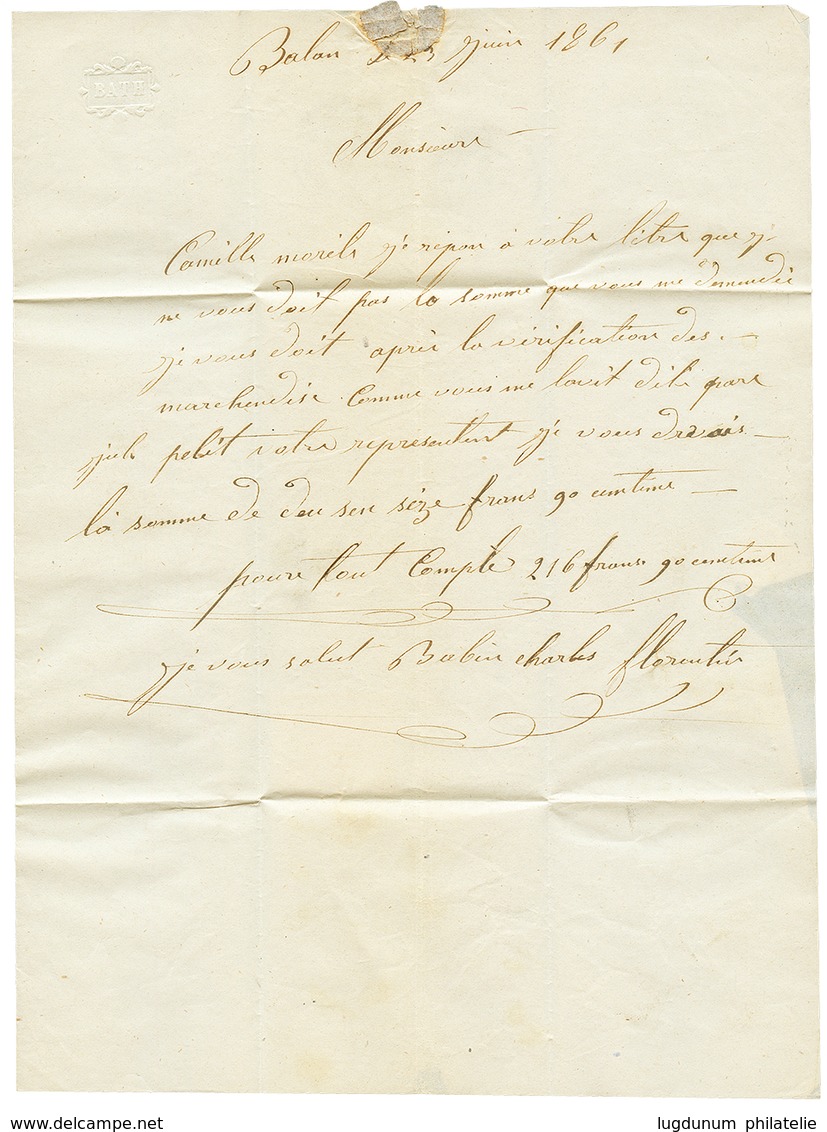 BATH
Balan le 23 juin 1861
Monsieure
Camille morele je répon à votre litre que je
ne vous doit pas la somme que vous me demandée
je vous doit après la vérification des
marchendise Comme vous me lavit dit pare
jule petit votre representent je vous devais
là somme de deu sen séze frans 90 centime
poure tout Comple 216 frans 90 centime
je vous salut Babin charles florentin
www.delcampe.net
lugdunum philatelie